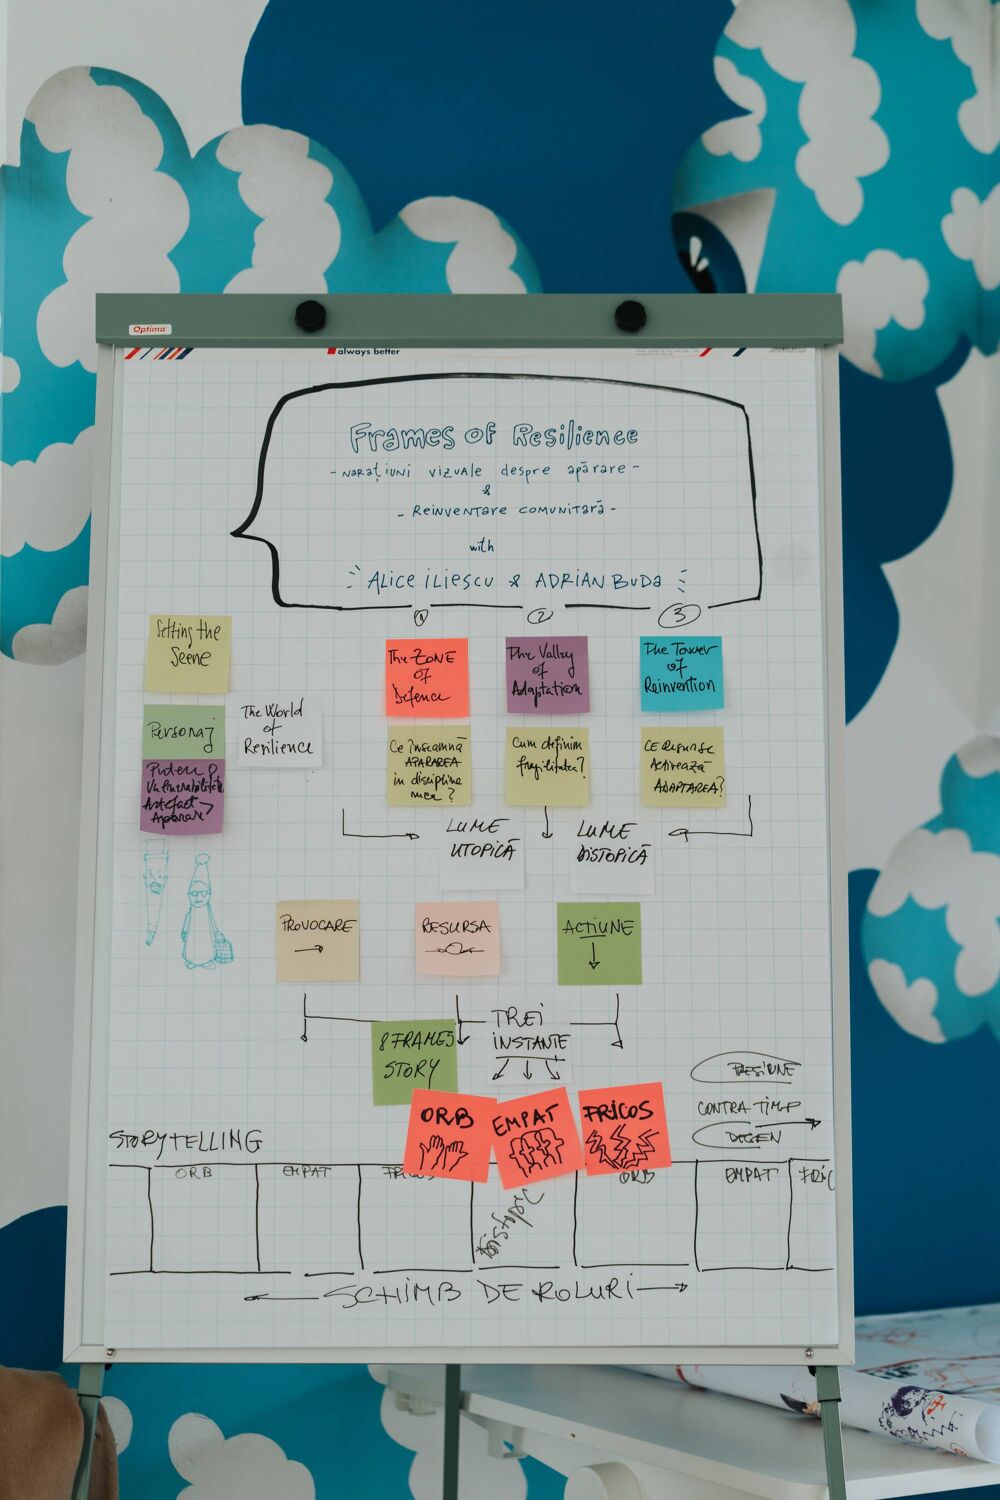 Optima
always better
Frames of Resilience
- NARAȚIUNI VIZUALE despre apărare -
&
- REINVENTARE COMUNITARĂ -
with
ALICE ILIESCU & ADRIAN BUDA
1 2 3
Setting the
Scene
Personaj
The World
of
Resilience
Putere
Vulnerabilitate
Artefact
Apărare
The ZONE
of
Defence
The Valley
of
Adaptation
The Tower
of
Reinvention
Ce înseamnă
APĂRAREA
în discipline
mea?
Cum definim
fragilitatea?
CE
Activează
ADAPTAREA?
LUME
UTOPICĂ
LUME
DISTOPICĂ
PROVOCARE
RESURSA
ACTIUNE
8 FRAMES
STORY
TREI
INSTANTE
ORB
EMPAT
FRICOS
PRESIUNE
CONTRA TIMP
STORYTELLING
ORB EMPAT FRICOS ORB EMPAT FRIC
SCHIMB DE ROLURI